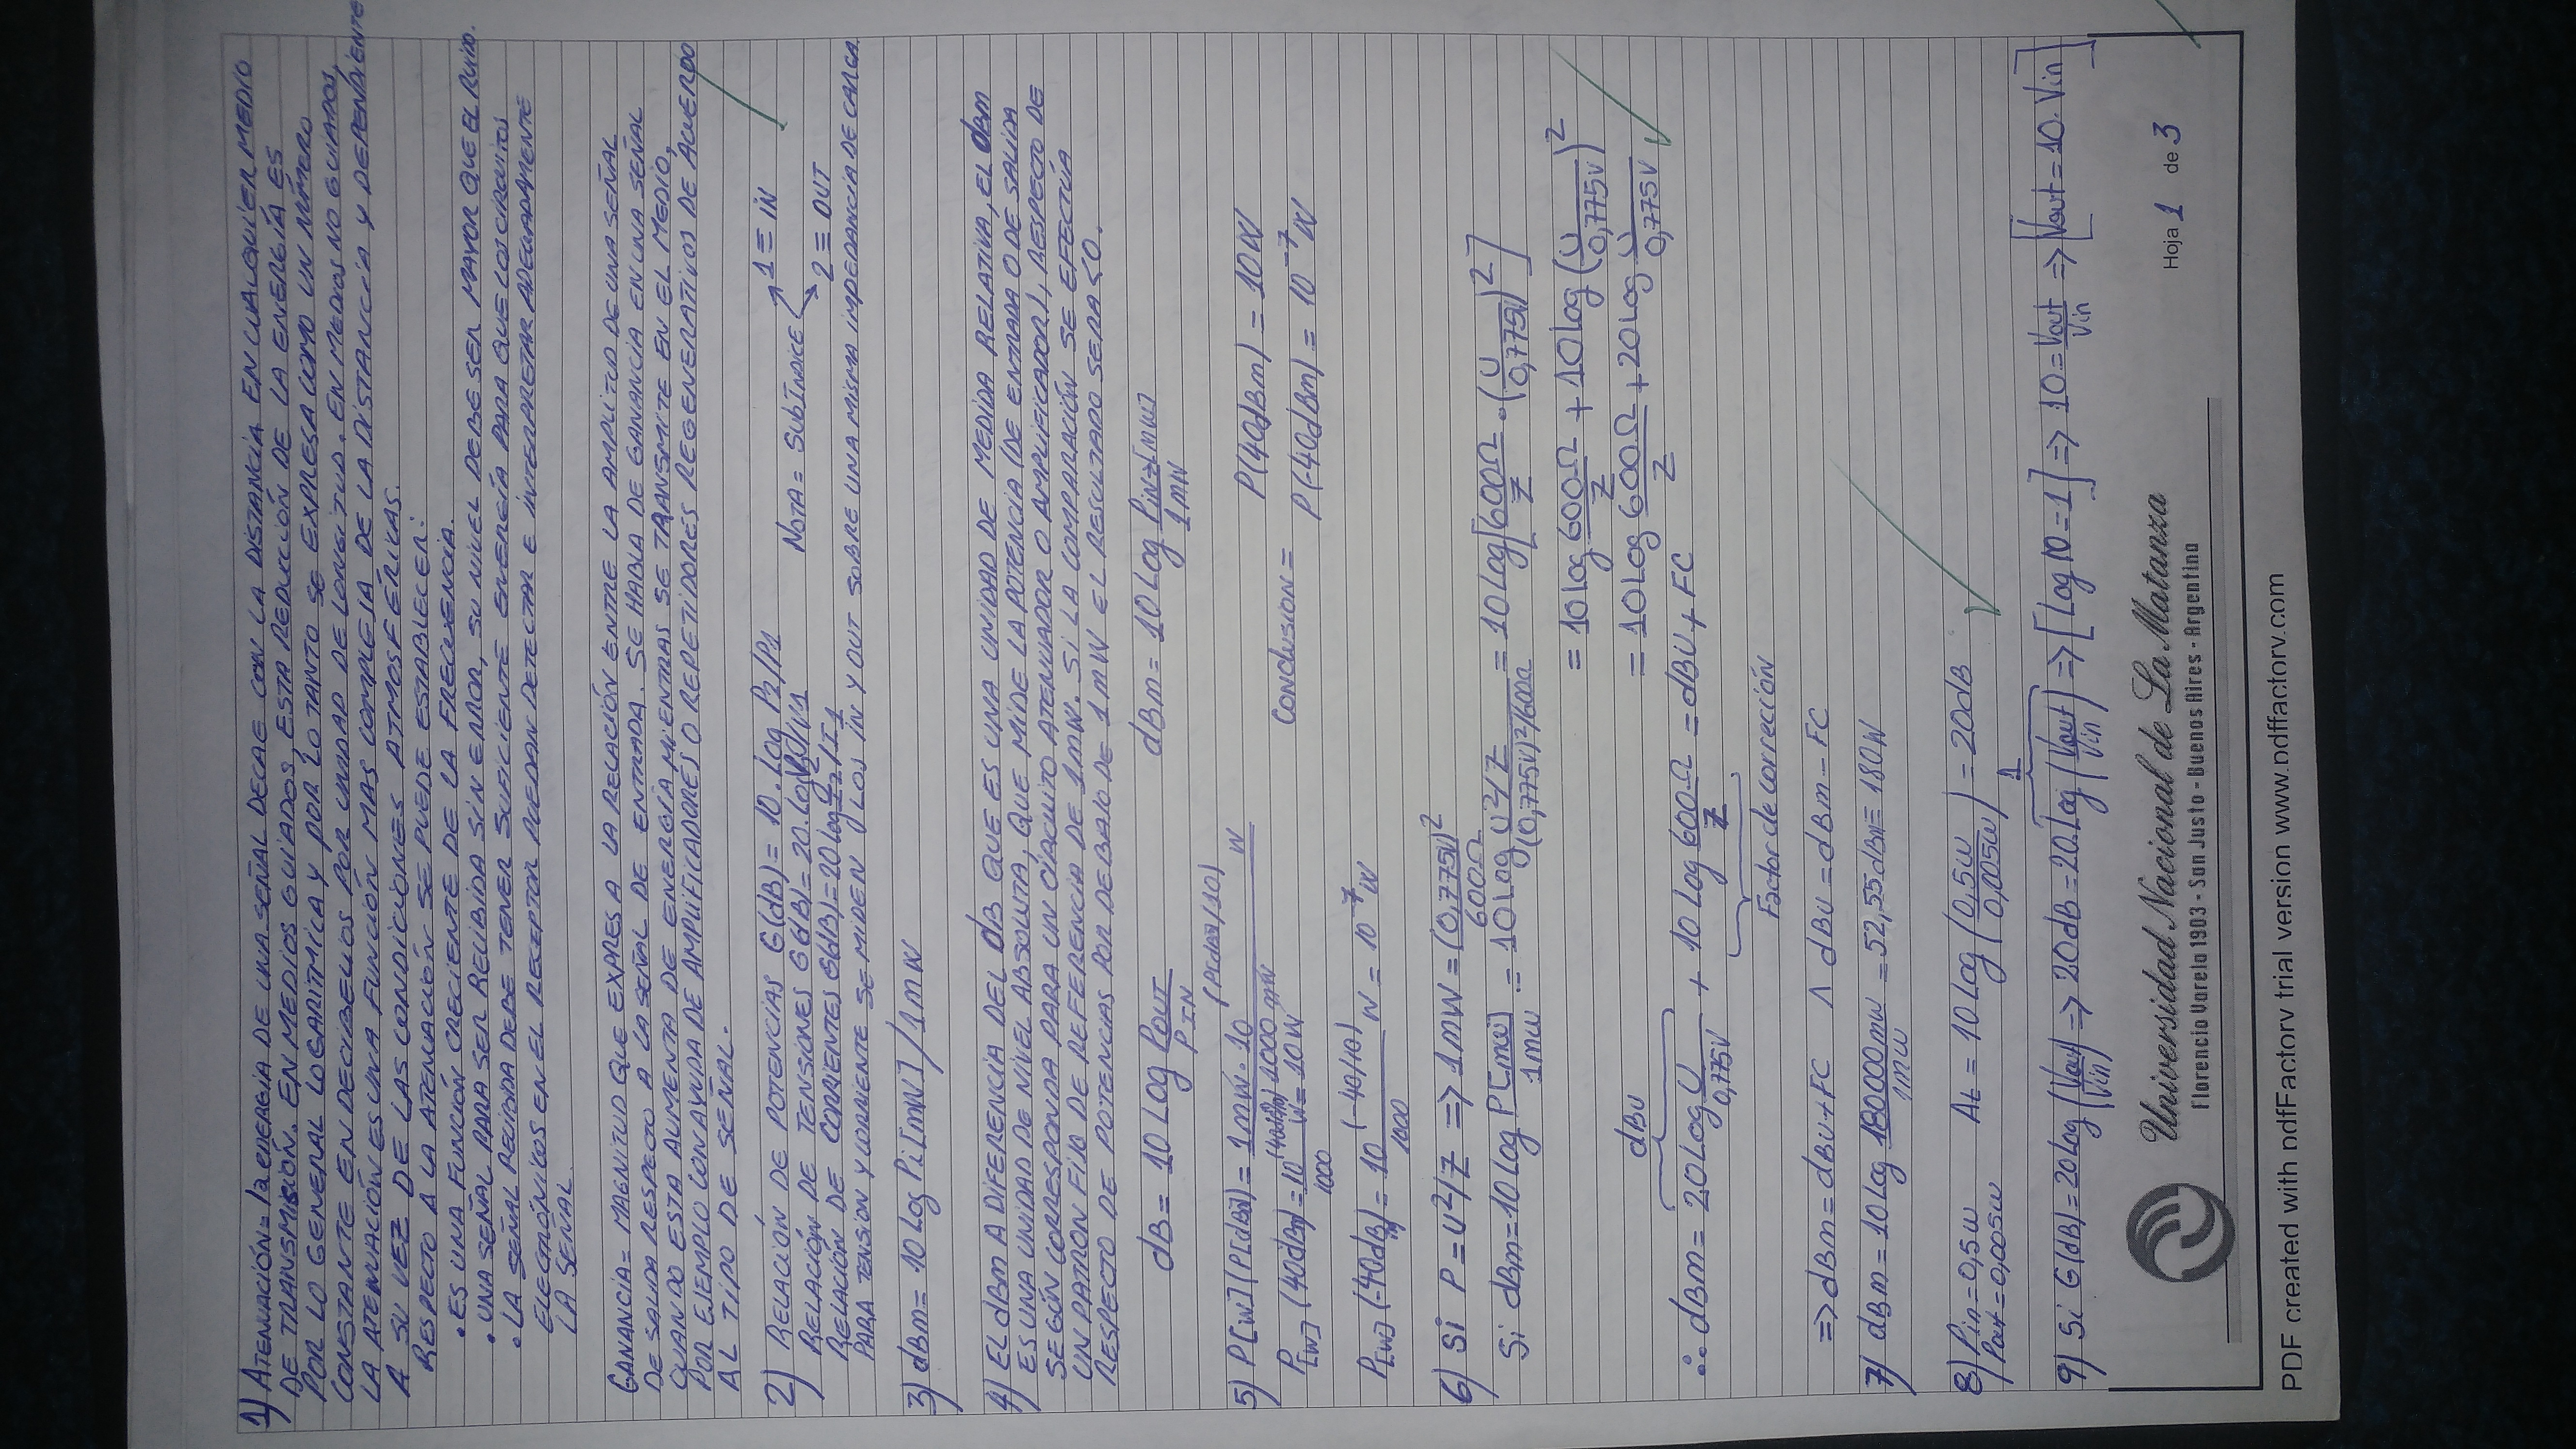 1) ATENUACIÓN= la ENERGÍA DE UNA SEÑAL DECAE CON LA DISTANCIA EN CUALQUIER MEDIO
DE TRANSMISIÓN. EN MEDIOS GUIADOS, ESTA REDUCCIÓN DE LA ENERGÍA ES
POR LO GENERAL LOGARITMICA Y POR LO TANTO SE EXPRESA COMO UN NÚMERO
CONSTANTE EN DECIBELIOS POR UNIDAD DE LONGITUD. EN MEDIOS NO GUIADOS,
LA ATENUACIÓN ES UNA FUNCIÓN MAS COMPLEJA DE LA DISTANCIA Y DEPENDIENTE
A SU VEZ DE LAS CONDICIONES ATMOSFÉRICAS.
RESPECTO A LA ATENUACIÓN SE PUEDE ESTABLECER:
• ES UNA FUNCIÓN CRECIENTE DE LA FRECUENCIA.
• UNA SEÑAL PARA SER RECIBIDA SIN ERROR, SU NIVEL DEBE SER MAYOR QUE EL RUIDO.
• LA SEÑAL RECIBIDA DEBE TENER SUFICIENTE ENERGÍA PARA QUE LOS CIRCUITOS
ELECTRÓNICOS EN EL RECEPTOR PUEDAN DETECTAR E INTERPRETAR ADECUADAMENTE
LA SEÑAL.
GANANCIA= MAGNITUD QUE EXPRESA LA RELACIÓN ENTRE LA AMPLITUD DE UNA SEÑAL
DE SALIDA RESPECTO A LA SEÑAL DE ENTRADA. SE HABLA DE GANANCIA EN UNA SEÑAL
CUANDO ESTA AUMENTA DE ENERGÍA MIENTRAS SE TRANSMITE EN EL MEDIO,
POR EJEMPLO CON AYUDA DE AMPLIFICADORES O REPETIDORES REGENERATIVOS DE ACUERDO
AL TIPO DE SEÑAL.
2) RELACIÓN DE POTENCIAS G(dB)= 10. Log P2/P1
RELACIÓN DE TENSIONES G(dB)= 20. Log V2/V1 NOTA= SUBINDICE 1 ≡ IN
RELACIÓN DE CORRIENTES G(dB)= 20 Log I2/I1 2 ≡ OUT
PARA TENSION Y CORRIENTE SE MIDEN LOS IN Y OUT SOBRE UNA MISMA IMPEDANCIA DE CARGA.
3) dBm= 10 Log Pi[mW] / 1mW
4) EL dBm A DIFERENCIA DEL dB QUE ES UNA UNIDAD DE MEDIDA RELATIVA, EL dBm
ES UNA UNIDAD DE NIVEL ABSOLUTA, QUE MIDE LA POTENCIA (DE ENTRADA O DE SALIDA
SEGÚN CORRESPONDA PARA UN CIRCUITO ATENUADOR O AMPLIFICADOR), RESPECTO DE
UN PATRON FIJO DE REFERENCIA DE 1mW. SI LA COMPARACIÓN SE EFECTÚA
RESPECTO DE POTENCIAS POR DEBAJO DE 1mW EL RESULTADO SERA <0.
dB = 10 Log POUT/PIN dBm = 10 Log PIN→[mW]/1mW
5) P[W](P[dBm]) = 1mW·10^(P[dBm]/10)/1000 mW W
P[W] (40dBm) = 10^(40dBm/10)/1000 W = 10W CONCLUSION = P(40dBm) = 10W
P(-40dBm) = 10^-7 W
P[W] (-40dBm) = 10^(-40/10)/1000 W = 10^-7 W
6) Si P = U²/Z => 1mW = (0,775V)²/600Ω
Si dBm = 10 Log P[mW]/1mW = 10 Log U²/Z/(0,775V)²/600Ω = 10 Log[600Ω/Z · (U/0,775V)²]
= 10 log 600Ω/Z + 10 log (U/0,775V)²
= 10 Log 600Ω/Z + 20 Log U/0,775V
dBU
∴ dBm = 20 Log U/0,775V + 10 Log 600Ω/Z = dBU + FC
Factor de corrección
=> dBm = dBU + FC Λ dBU = dBm - FC
7) dBm = 10 Log 180000mW/1mW = 52,55dBm ≡ 180W
8) Pin = 0,5W At = 10 Log (0,5W/0,005W) = 20dB
Pout = 0,005W
1
9) Si G(dB) = 20 Log (Vout/Vin) => 20dB = 20. Log (Vout/Vin) => [Log 10 = 1] => 10 = Vout/Vin => [Vout = 10. Vin]
Universidad Nacional de La Matanza
Florencio Varela 1903 - San Justo - Buenos Aires - Argentina
Hoja 1 de 3
PDF created with pdfFactory trial version www.pdffactory.com